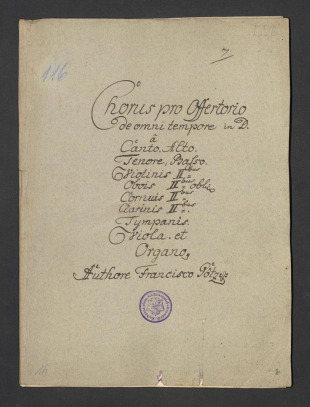 7
116
Chorus pro Offertorio
de omni tempore in D.
â
Canto, Alto,
Tenore, Basso.
Violinis II bus
Obois II bus oblig
Cornuis II bus
Clarinis II bus
Tympanis.
Viola. et
Organo,
Authore Francisco Götz